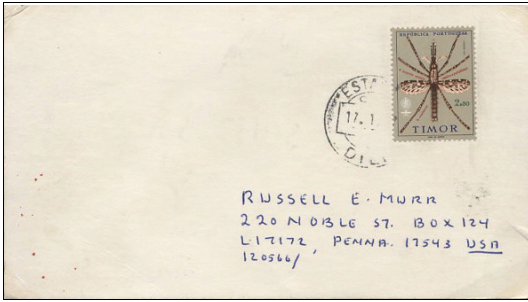 REPÚBLICA PORTUGUESA
2$50
TIMOR
ESTA
17.1
DILI
RUSSELL E. MURR
220 NOBLE ST. BOX 124
LITITZ, PENNA. 17543 USA
120566/